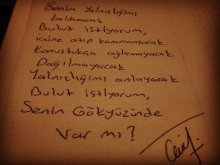 Benim Yalnızlığımı
kaldıracak
Bulut istiyorum,
içine atıp kararmayacak
Konuştukça ağlamayacak
Dağılmayacak
Yalnızlığımı anlayacak
Bulut istiyorum,
Senin Gökyüzünde
var mı?